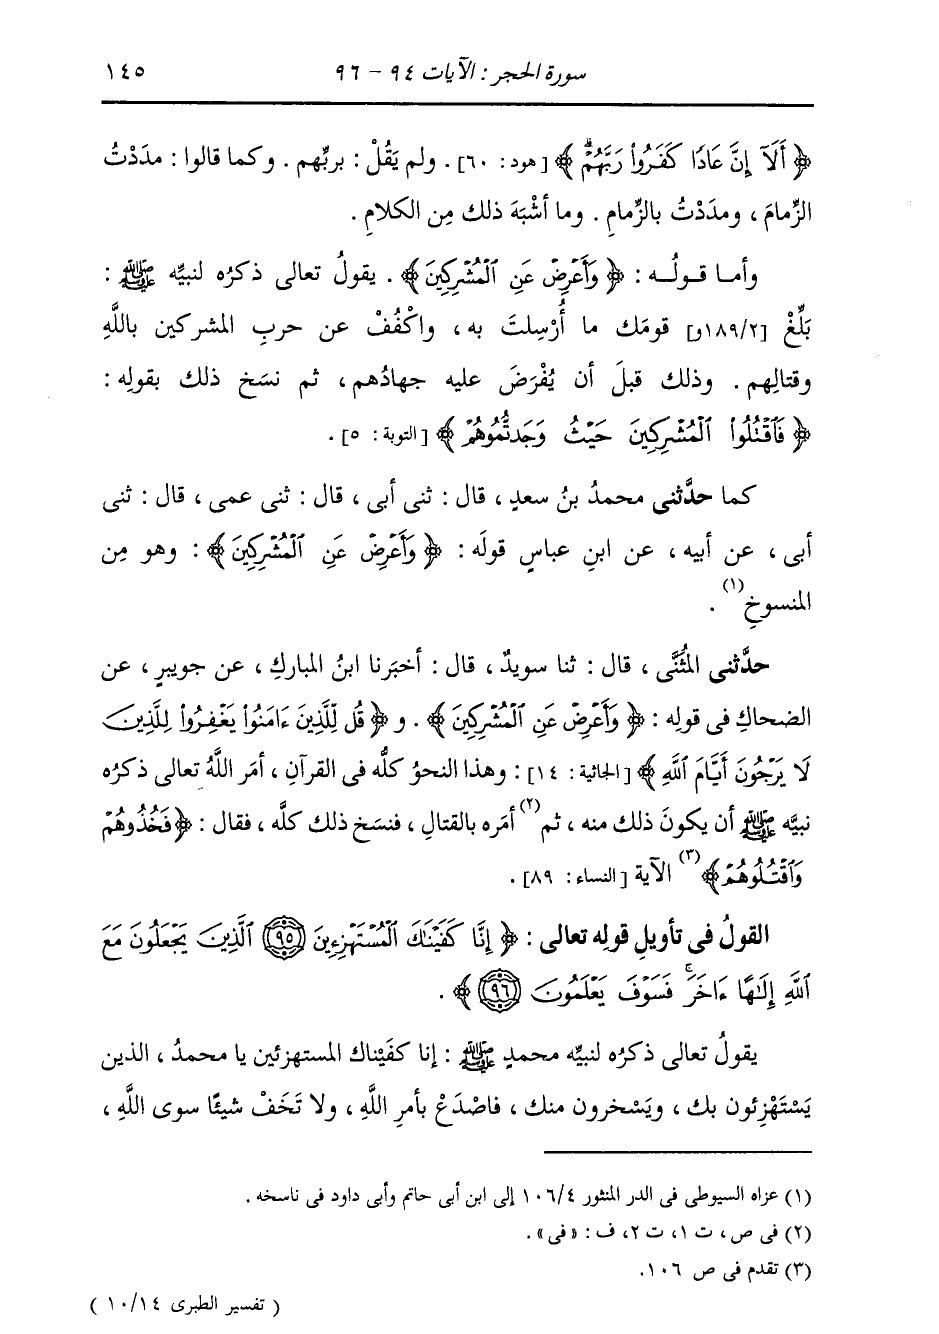 سورة الحجر : الآيات ٩٤ - ٩٦ ١٤٥
﴿ أَلَآ إِنَّ عَادًا كَفَرُوا۟ رَبَّهُمْ ﴾ [هود: ٦٠] . ولم يَقُلْ : بربِّهم . وكما قالوا : مدَدْتُ
الزِّمامَ ، ومدَدْتُ بالزِّمامِ . وما أشْبَهَ ذلك مِن الكلامِ .
وأمـا قـولُـه : ﴿ وَأَعْرِضْ عَنِ ٱلْمُشْرِكِينَ ﴾ . يقولُ تعالى ذكرُه لنبيِّه ﷺ :
بَلِّغْ [١٨٩/٢و] قومَك ما أُرْسِلتَ به ، واكْفُفْ عن حربِ المشركين باللَّهِ
وقتالِهم . وذلك قبلَ أن يُفْرَضَ عليه جهادُهم ، ثم نسَخ ذلك بقولِه :
﴿ فَٱقْتُلُوا۟ ٱلْمُشْرِكِينَ حَيْثُ وَجَدتُّمُوهُمْ ﴾ [التوبة: ٥] .
كما حدَّثنى محمدُ بنُ سعدٍ ، قال : ثنى أبى ، قال : ثنى عمى ، قال : ثنى
أبى ، عن أبيه ، عن ابنِ عباسٍ قولَه : ﴿ وَأَعْرِضْ عَنِ ٱلْمُشْرِكِينَ ﴾ : وهو مِن
المنسوخِ (١) .
حدَّثنى المُثَنَّى ، قال : ثنا سويدٌ ، قال : أخبَرنا ابنُ المباركِ ، عن جويبرٍ ، عن
الضحاكِ فى قولِه : ﴿ وَأَعْرِضْ عَنِ ٱلْمُشْرِكِينَ ﴾ . و ﴿ قُل لِّلَّذِينَ ءَامَنُوا۟ يَغْفِرُوا۟ لِلَّذِينَ
لَا يَرْجُونَ أَيَّامَ ٱللَّهِ ﴾ [الجاثية: ١٤] : وهذا النحوُ كلُّه فى القرآنِ ، أمَر اللَّهُ تعالى ذكرُه
نبيَّه ﷺ أن يكونَ ذلك منه ، ثم (٢) أمَره بالقتالِ ، فنسَخ ذلك كلَّه ، فقال : ﴿ فَخُذُوهُمْ
وَٱقْتُلُوهُمْ ﴾ (٣) الآية [النساء: ٨٩] .
القولُ فى تأويلِ قولِه تعالى : ﴿ إِنَّا كَفَيْنَاكَ ٱلْمُسْتَهْزِءِينَ ٩٥ ٱلَّذِينَ يَجْعَلُونَ مَعَ
ٱللَّهِ إِلَٰهًا ءَاخَرَ ۚ فَسَوْفَ يَعْلَمُونَ ٩٦ ﴾ .
يقولُ تعالى ذكرُه لنبيِّه محمدٍ ﷺ : إنا كفَيْناك المستهزئين يا محمدُ ، الذين
يَسْتَهْزِئون بك ، ويَسْخرون منك ، فاصْدَعْ بأمرِ اللَّهِ ، ولا تَخَفْ شيئًا سوى اللَّهِ ،
(١) عزاه السيوطى فى الدر المنثور ١٠٦/٤ إلى ابن أبى حاتم وأبى داود فى ناسخه .
(٢) فى ص ، ت ١، ت ٢، ف : «فى» .
(٣) تقدم فى ص ١٠٦.
( تفسير الطبرى ١٠/١٤ )